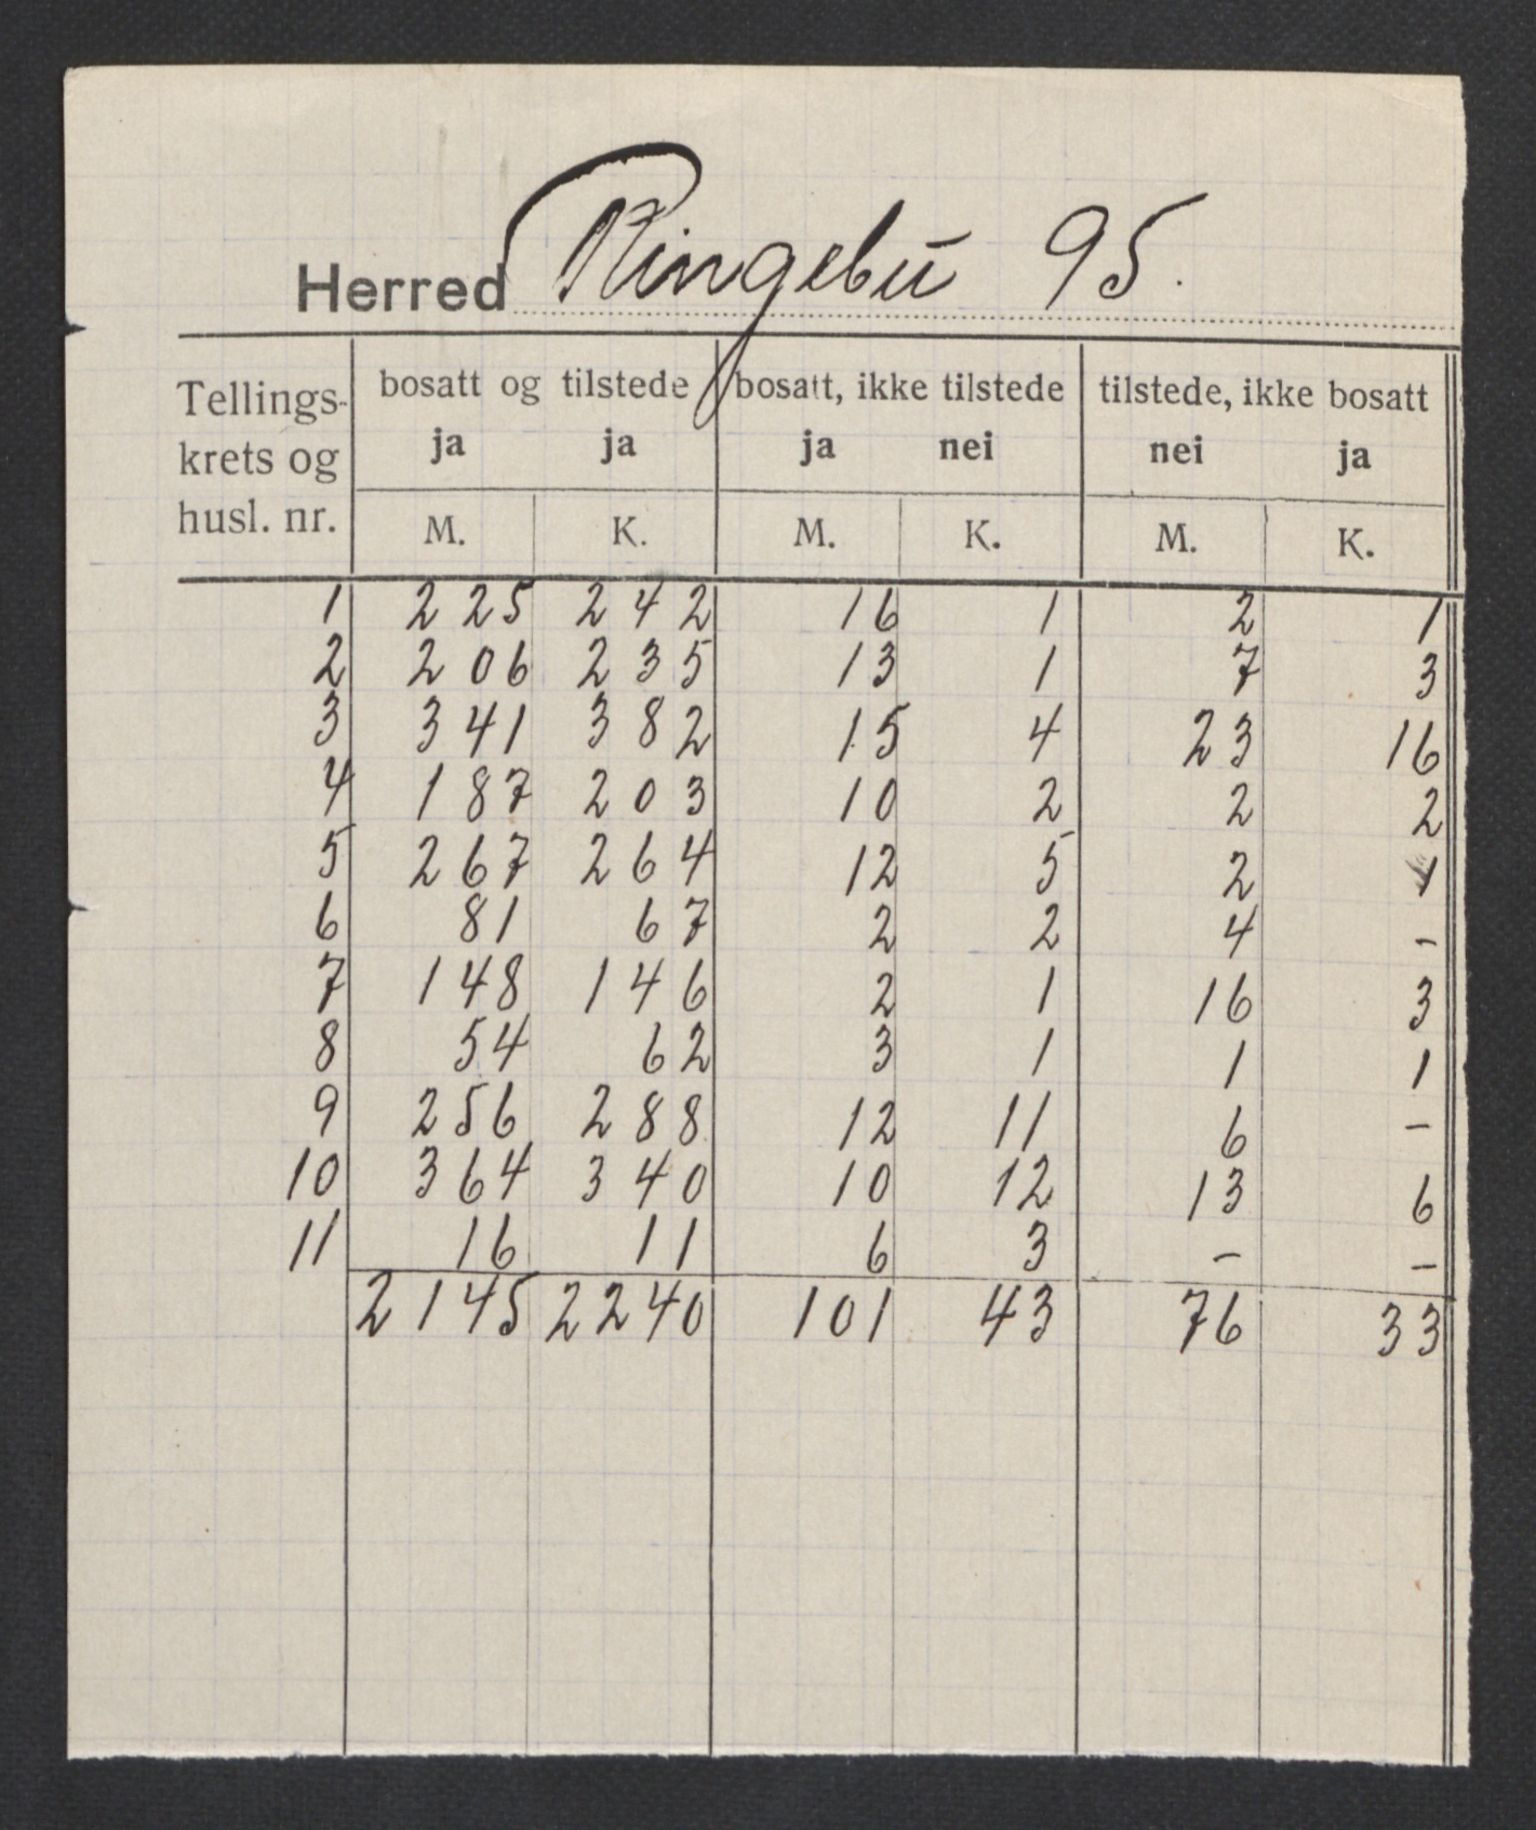 Herred Ringebū 95.
Tellings- bosatt og tilstede bosatt, ikke tilstede tilstede, ikke bosatt
krets og ja ja ja nei nei ja
husl. nr. M. K. M. K. M. K.
1 225 242 16 1 2 1
2 206 235 13 1 7 3
3 341 382 15 4 23 16
4 187 203 10 2 2 2
5 267 264 12 5 2 1
6 81 67 2 2 4 -
7 148 146 2 1 16 3
8 54 62 3 1 1 1
9 256 288 12 11 6 -
10 364 340 10 12 13 6
11 16 11 6 3 - -
2145 2240 101 43 76 33